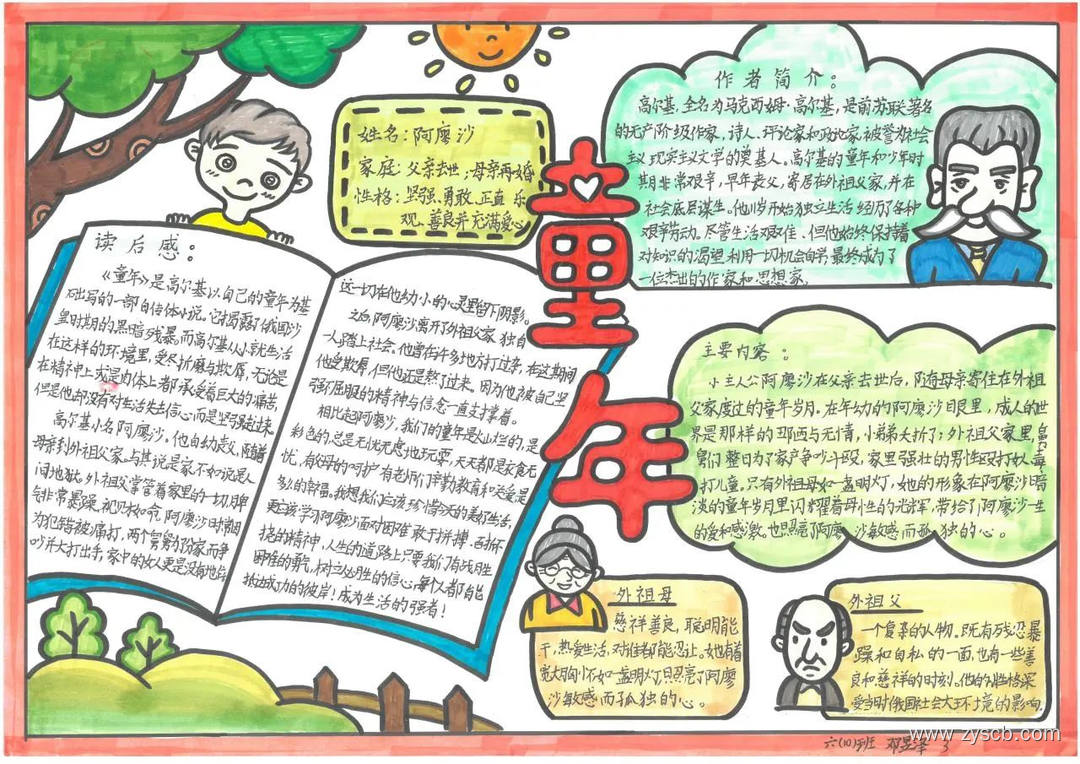 童年
姓名:阿廖沙
家庭:父亲去世,母亲再婚
性格:坚强、勇敢、正直、乐
观、善良并充满爱心
作者简介:
高尔基,全名为马克西姆·高尔基,是前苏联著名
的无产阶级作家,诗人、评论家和政论家,被誉为社会
主义现实主义文学的奠基人。高尔基的童年和少年时
期非常艰辛,早年丧父,寄居在外祖父家,并在
社会底层谋生。他11岁开始独立生活 经历了各种
艰辛劳动,尽管生活艰难,但他始终保持着
对知识的渴望,利用一切机会自学,最终成为了
一位杰出的作家和思想家。
读后感:
《童年》是高尔基以自己的童年为基
础写的一部自传体小说。它揭露了俄国沙
皇时期的黑暗、残暴。而高尔基从小就生活
在这样的环境里,受尽折磨与欺辱,无论是
在精神上或是肉体上都承受着巨大的痛苦,
但是他却没有对生活失去信心而是坚强起过来。
高尔基小名阿廖沙。他自幼丧父,随着
母亲到外祖父家,与其说是家,不如说是人
间地狱。外祖父掌管着家里的一切,脾
气非常暴躁,视财如命,阿廖沙时常因
为犯错被痛打,两个舅舅为分家而争
吵并大打出手,家中的女人更是没有地位
这一切在他幼小的心灵里留下阴影。
之后,阿廖沙离开了外祖父家,独自
一人踏上社会。他曾在许多地方打过杂,在这期间
他受欺辱,但他还是熬了过来,因为他被自己坚
强不屈服的精神与信念一直支撑着。
相比起阿廖沙,我们的童年是灿烂的,是
彩色的,总是无忧无虑地玩耍,天天都是衣食无
忧,有父母的呵护,有老师们辛勤教育和关爱,是
多么的幸福。我想我们应该珍惜今天的美好生活,
更应该学习阿廖沙面对困难敢于拼搏、百折不
挠的精神,人生的道路上只要我们有战胜
困难的勇气,树立必胜的信心,每个人都能
抵达成功的彼岸!成为生活的强者!
主要内容:
小主人公阿廖沙在父亲去世后,随母亲寄住在外祖
父家度过的童年岁月。在年幼的阿廖沙眼里,成人的世
界是那样的丑陋与无情,小弟夭折了;外祖父家里,
舅舅们整日为了家产争吵斗殴,家里强壮的男性殴打女人毒
打儿童。只有外祖母如一盏明灯,她的形象在阿廖沙暗
淡的童年岁月里闪耀着母性的光辉,带给了阿廖沙一生
的爱和感激。也照亮了阿廖沙敏感而孤独的心。
外祖母
慈祥善良,聪明能
干,热爱生活,对谁都能忍让。她有着
宽大胸怀如一盏明灯,照亮了阿廖
沙敏感而孤独的心。
外祖父
一个复杂的人物。既有残忍暴
躁和自私的一面,也有一些善
良和慈祥的时刻。他的性格深
受当时俄国社会大环境的影响。
六(10)班 邓昱泽 3
www.zyscb.com